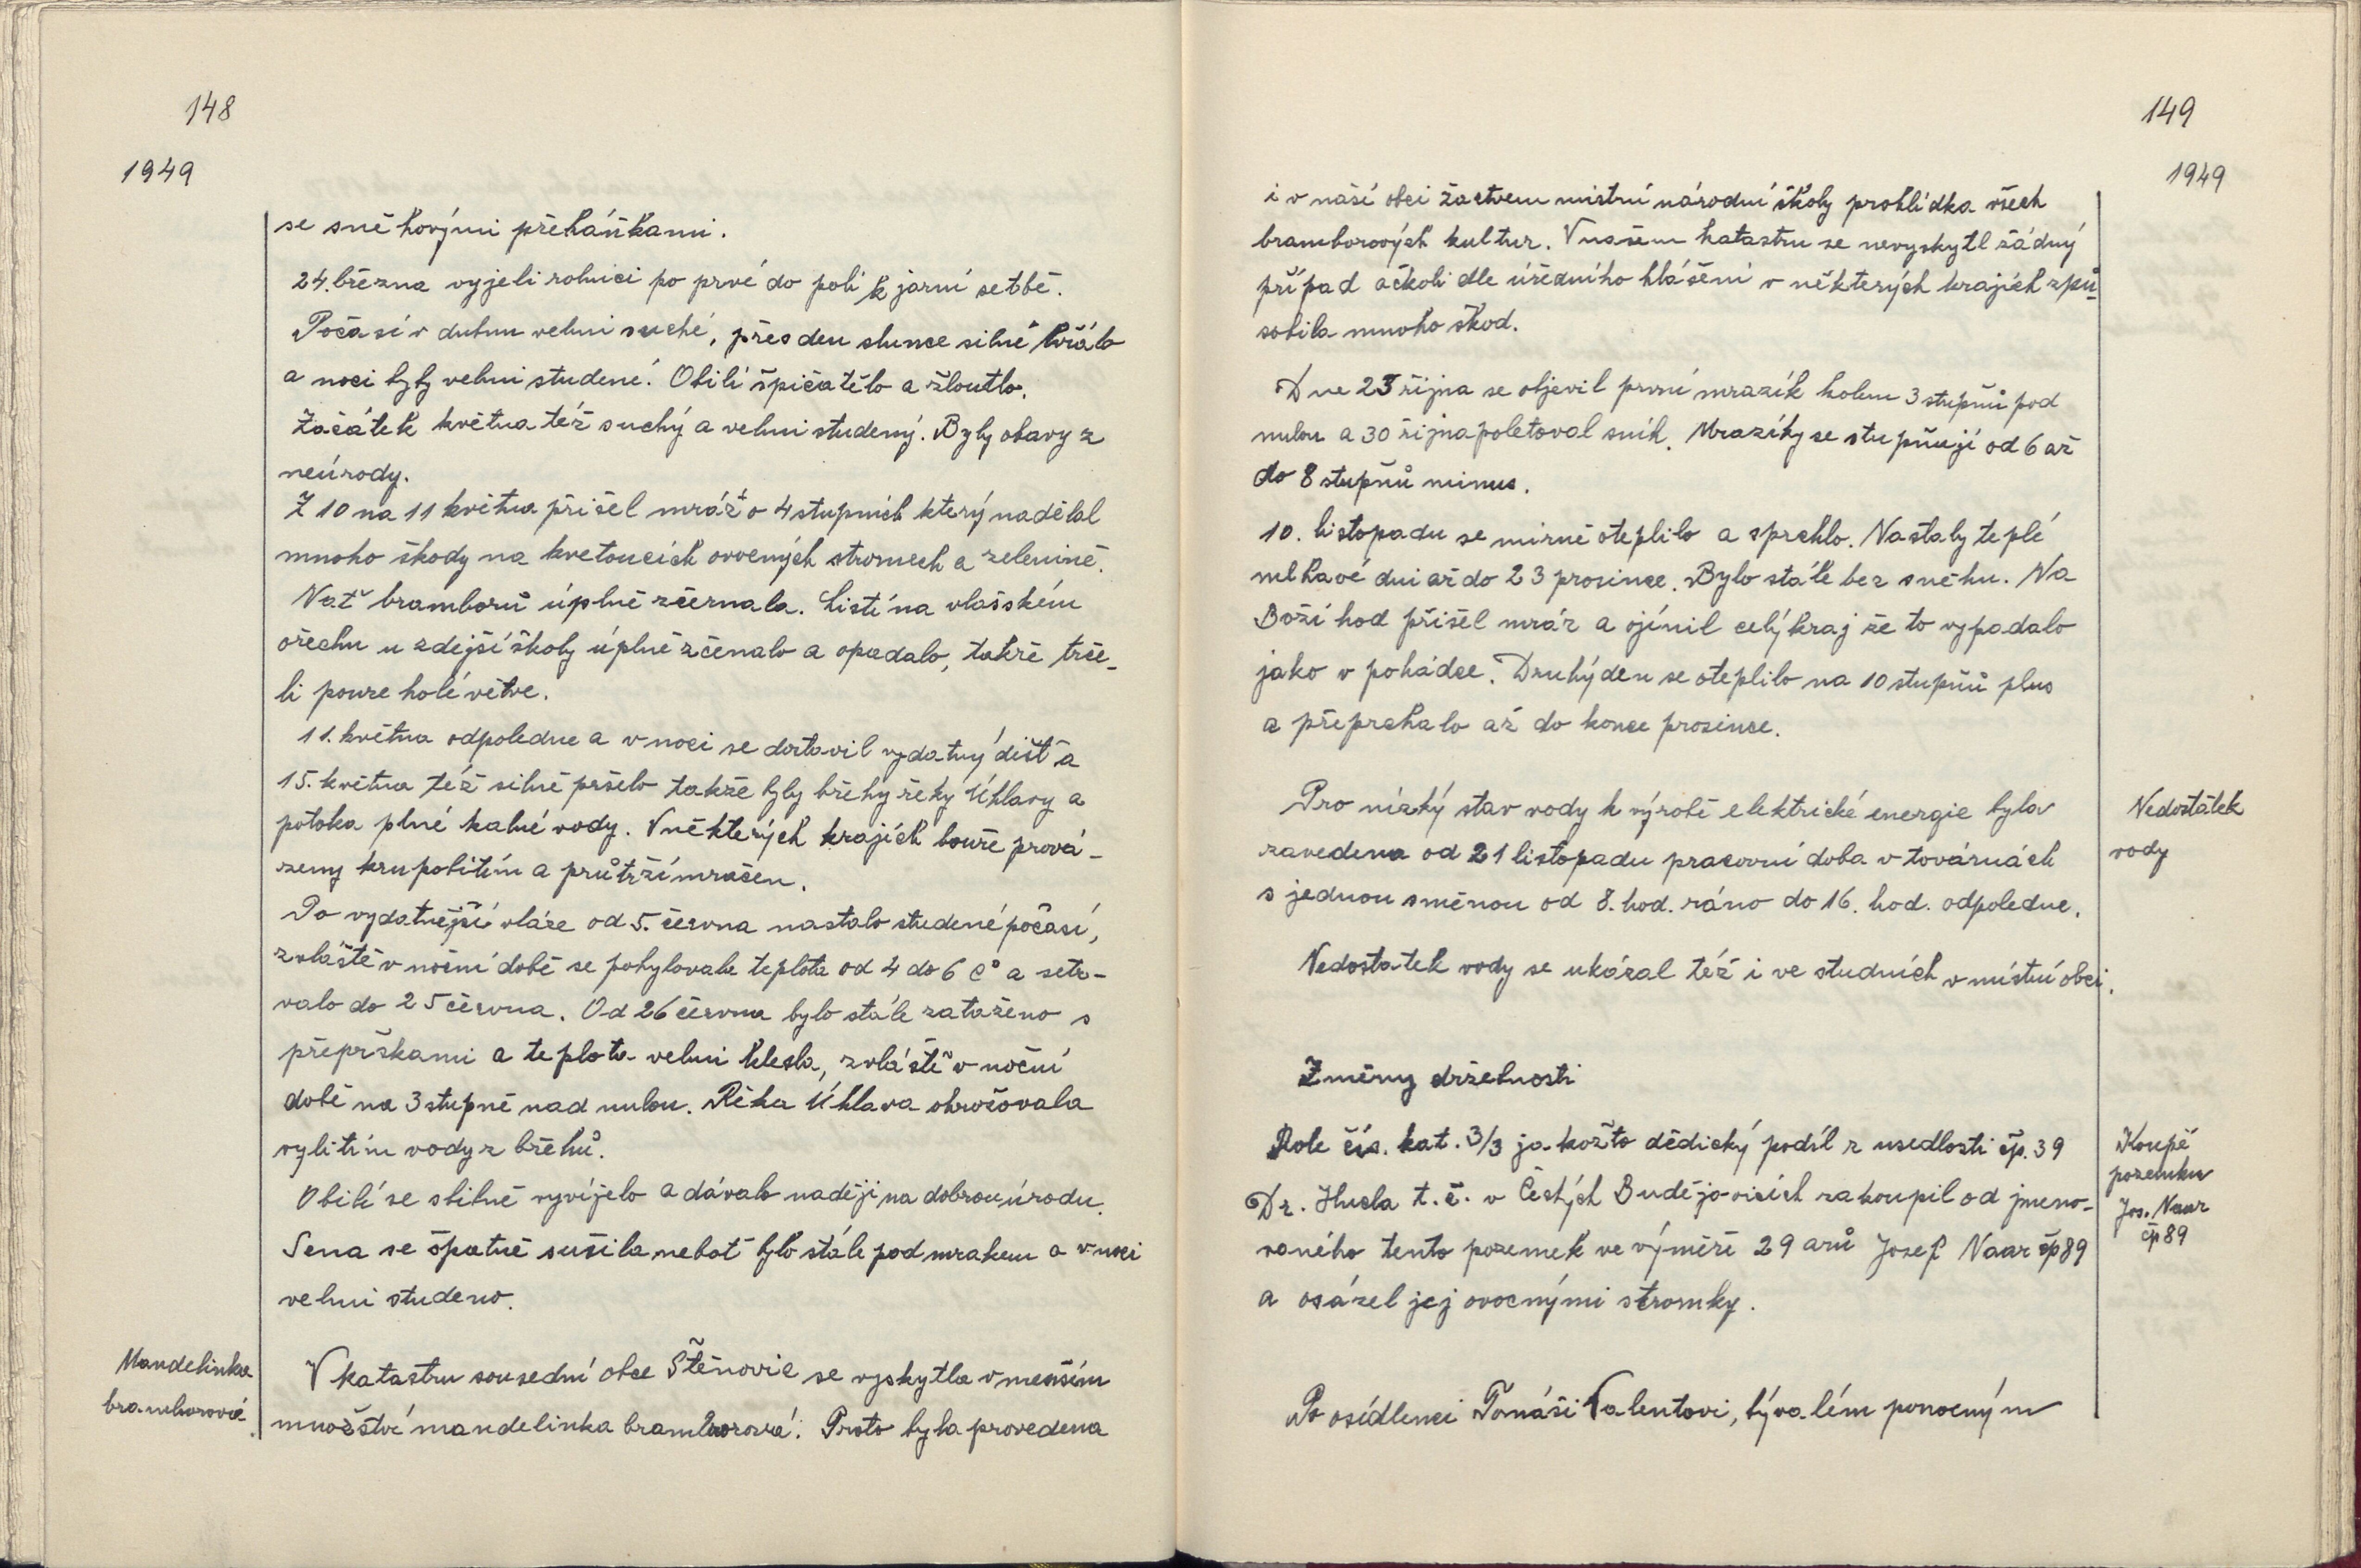 148
1949
se sněhovými přeháňkami.
24. března vyjeli rolníci po prvé do polí k jarní setbě.
Počasí v dubnu velmi suché, přes den slunce silně hřálo
a noci byly velmi studené. Obilí špičatělo a žloutlo.
Začátek května též suchý a velmi studený. Byly obavy z
neúrody.
Z 10 na 11 května přišel mráz o 4 stupních který nadělal
mnoho škody na kvetoucích ovocných stromech a zelenině.
Nať bramborů úplně zčernala. Listí na vlašském
ořechu u zdejší školy úplně zčenalo a opadalo, takže trče-
li pouze holé větve.
11. května odpoledne a v noci se dostavil vydatný déšť a
15. května též silně pršelo takže byly břehy řeky Úhlavy a
potoka plné kalné vody. V některých krajích bouře prová-
zeny krupobitím a průtrží mračen.
Po vydatnější vláze od 5. června nastalo studené počasí,
zvláště v noční době se pohybovala teplota od 4 do 6 C° a setr-
valo do 25 června. Od 26 června bylo stále zataženo s
přeprškami a teplota velmi klesla, zvláště v noční
době na 3 stupně nad nulou. Řeka Úhlava ohrožovala
vylitím vody z břehů.
Obilí se slibně vyvíjelo a dávalo naději na dobrou úrodu.
Sena se špatně sušila neboť bylo stále pod mrakem a v noci
velmi studeno.
Mandelinka
bramborová
V katastru sousední obce Štěnovic se vyskytla v menším
množství mandelinka bramborová. Proto byla provedena
149
1949
i v naší obci žactvem místní národní školy prohlídka všech
bramborových kultur. V našem katastru se nevyskytl žádný
případ ačkoli dle úředního hlášení v některých krajích způ-
sobila mnoho škod.
Dne 23 října se objevil první mrazík kolem 3 stupňů pod
nulou a 30 října poletoval sníh. Mrazíky se stupňují od 6 až
do 8 stupňů minus.
10. listopadu se mírně oteplilo a sprchlo. Nastaly teplé
mlhavé dni až do 23 prosince. Bylo stále bez sněhu. Na
Boží hod přišel mráz a ojínil celý kraj že to vypadalo
jako v pohádce. Druhý den se oteplilo na 10 stupňů plus
a přeprchalo až do konce prosince.
Nedostatek
vody
Pro nízký stav vody k výrobě elektrické energie byla
zavedena od 21 listopadu pracovní doba v továrnách
s jednou směnou od 8. hod. ráno do 16. hod. odpoledne.
Nedostatek vody se ukázal též i ve studních v místní obci.
Změny držebnosti
Koupě
pozemku
Jos. Naar
čp 89
Role čís. kat. 3/3 jakožto dědický podíl z usedlosti čp. 39
Dr. Hucla t. č. v Českých Budějovicích zakoupil od jmeno-
vaného tento pozemek ve výměře 29 arů Josef Naar čp 89
a osázel jej ovocnými stromky.
Po osídlenci Tomáši Valentovi, bývalém ponocným